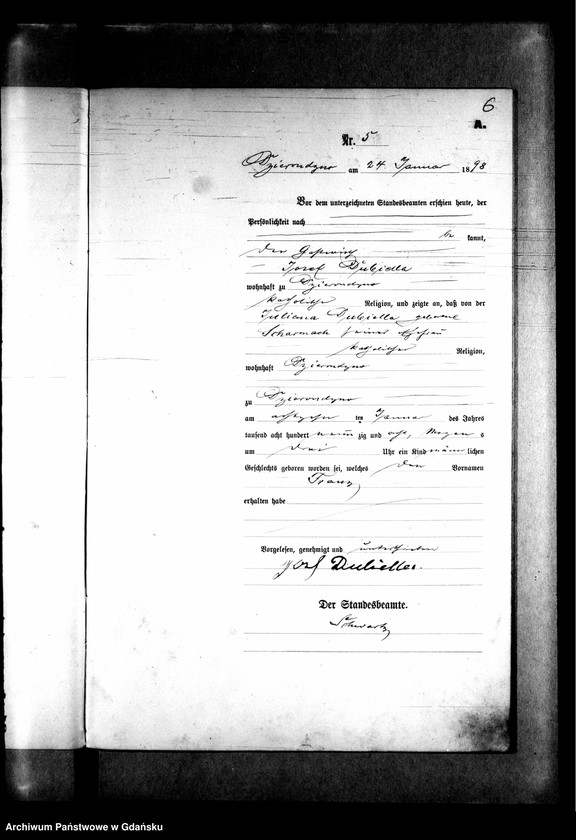 6
A.
Nr. 5
Dzierondzno am 24 Januar 1898
Vor dem unterzeichneten Standesbeamten erschien heute, der
Persönlichkeit nach
be kannt,
der Gastwirth
Josef Dubiella
wohnhaft zu Dzierondzno
katholischer Religion, und zeigte an, daß von der
Juliana Dubiella geborene
Scharmach seiner Ehefrau
katholischer Religion,
wohnhaft Dzierondzno
zu Dzierondzno
am achtzehn ten Januar des Jahres
tausend acht hundert neun zig und acht, Morgen s
um drei Uhr ein Kind männlichen
Geschlechts geboren worden sei, welches den Vornamen
Franz
erhalten habe
Vorgelesen, genehmigt und unterschrieben
Josef Dubiella.
Der Standesbeamte.
Schwartz
Archiwum Państwowe w Gdańsku